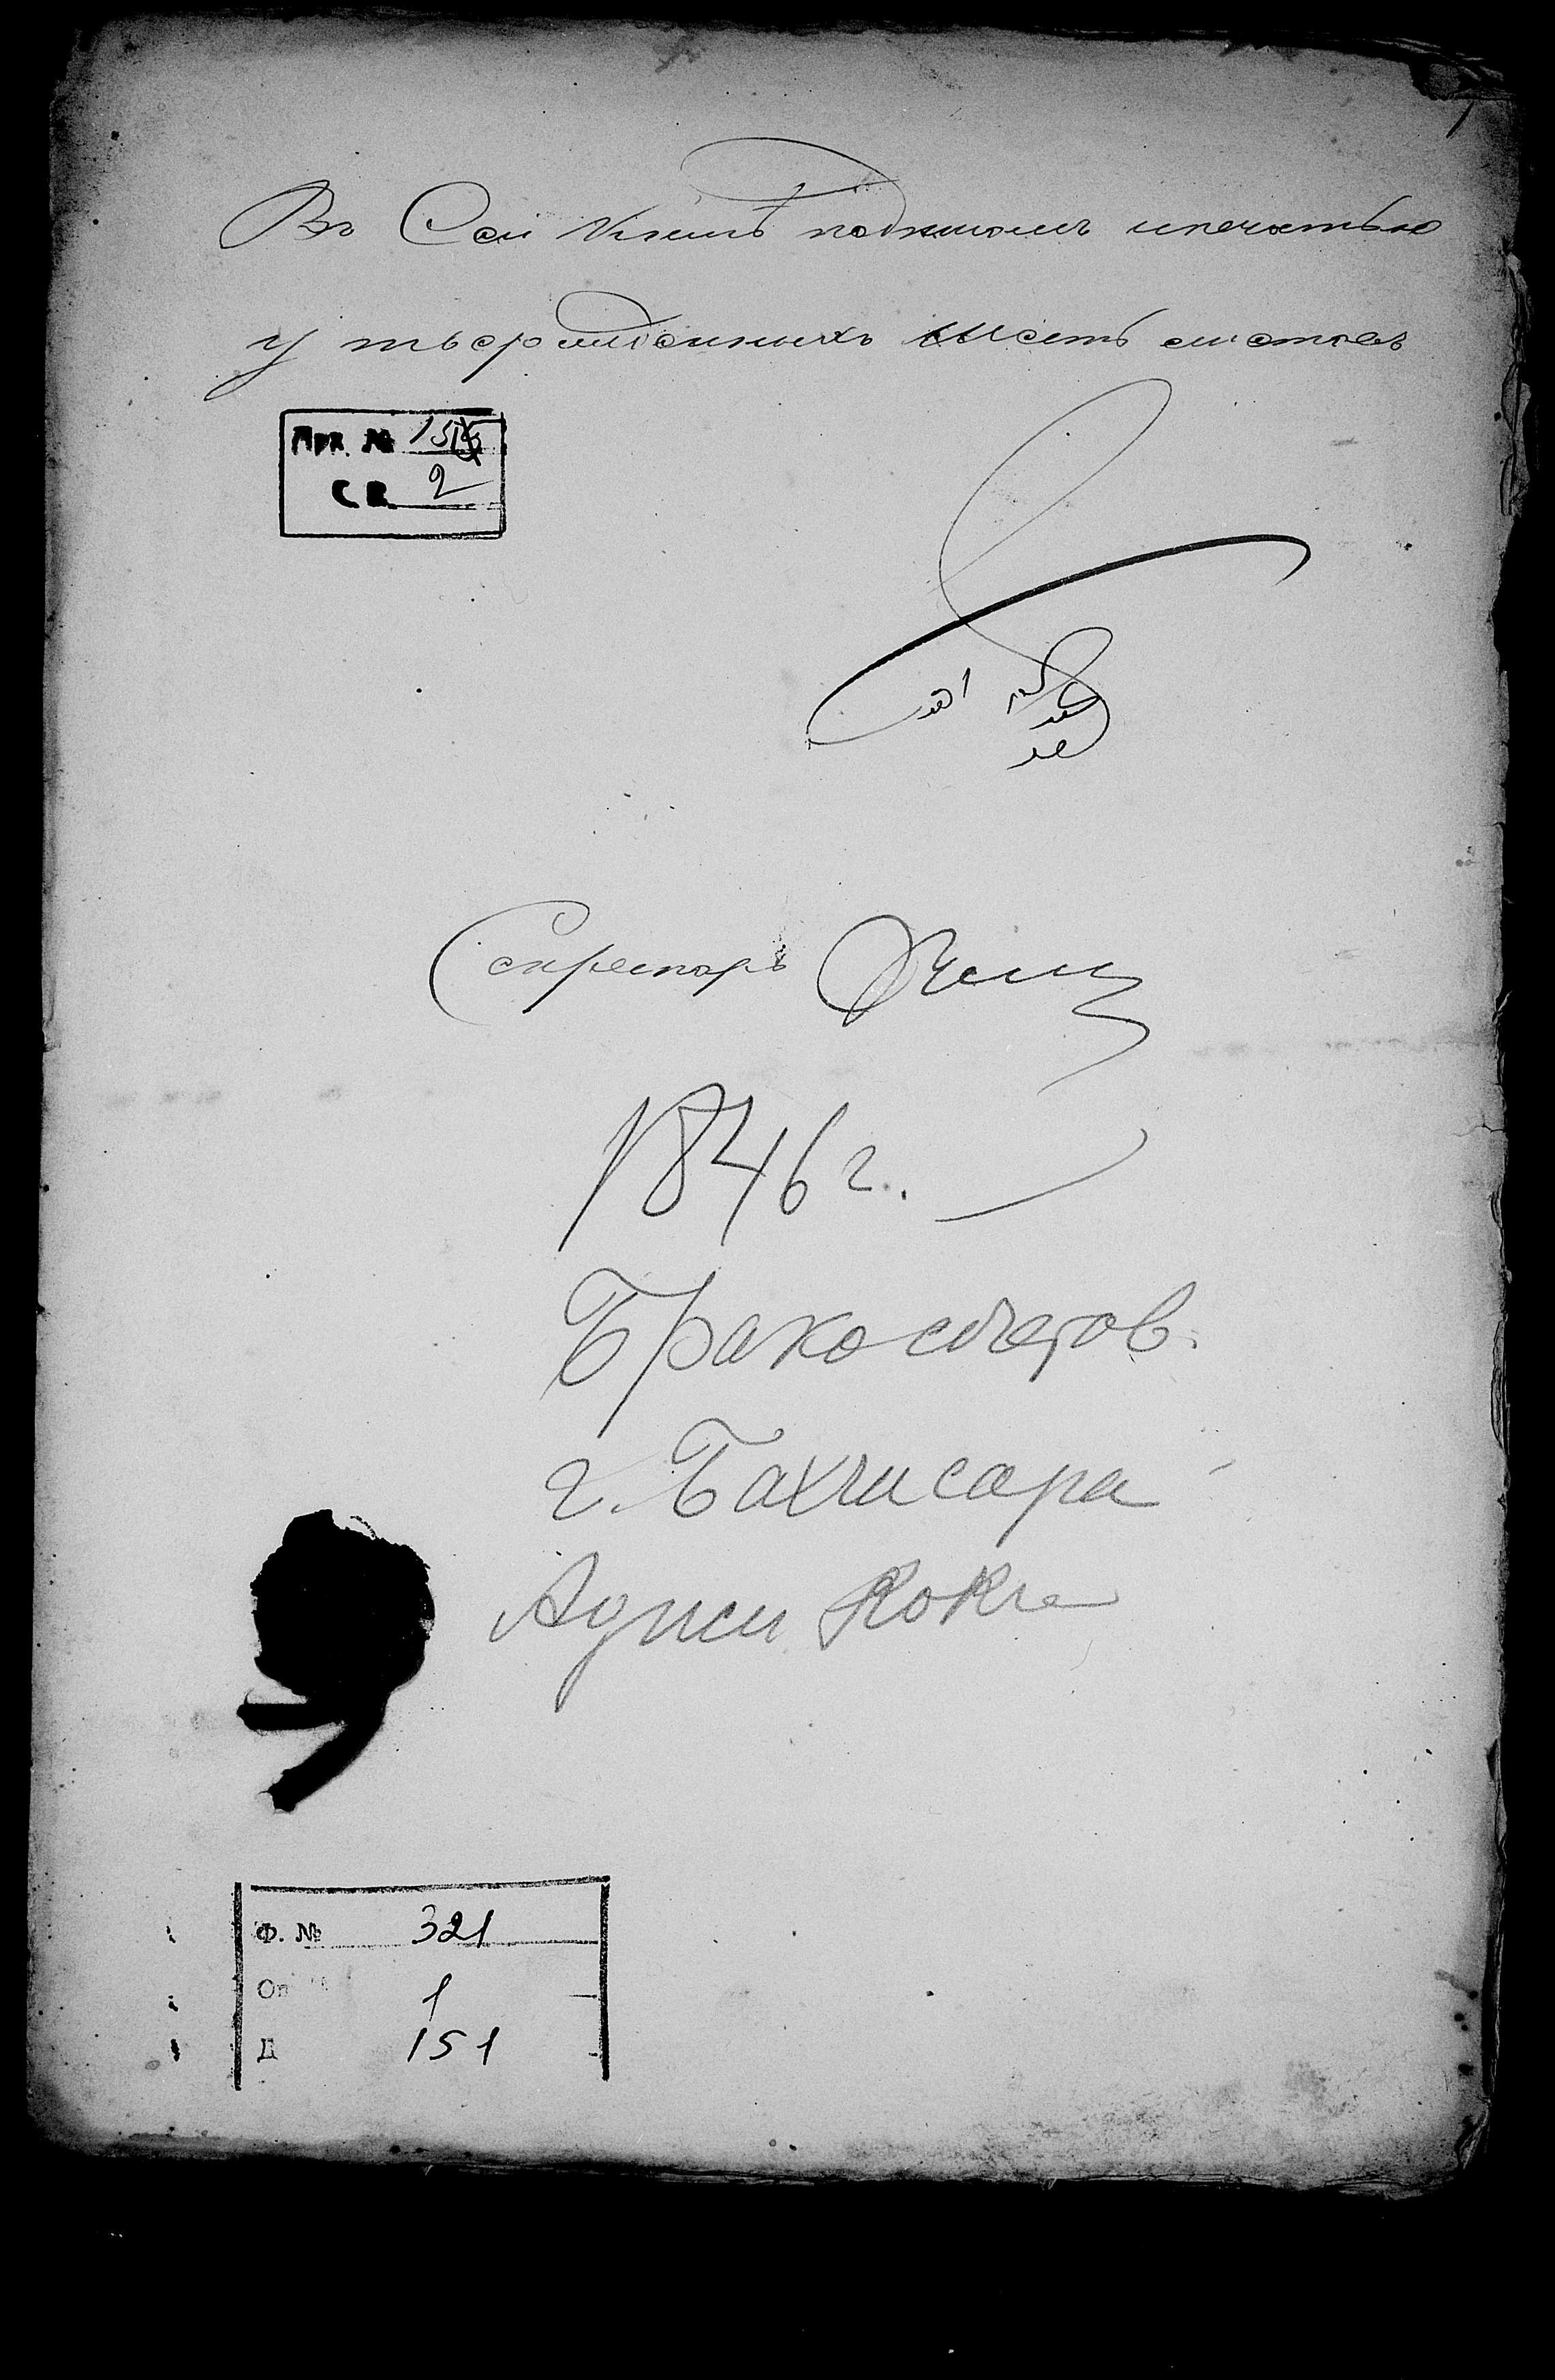 Въ Сей Книгѣ подписомъ ипечатью
утьержденныхъ шесть листовъ
Арх. № 151
Св. 2
Секретарь
1846 г.
Бракосочетов.
г. Бахчисара
Аджи Кокче
Ф. № 321
Оп 1
Д 151